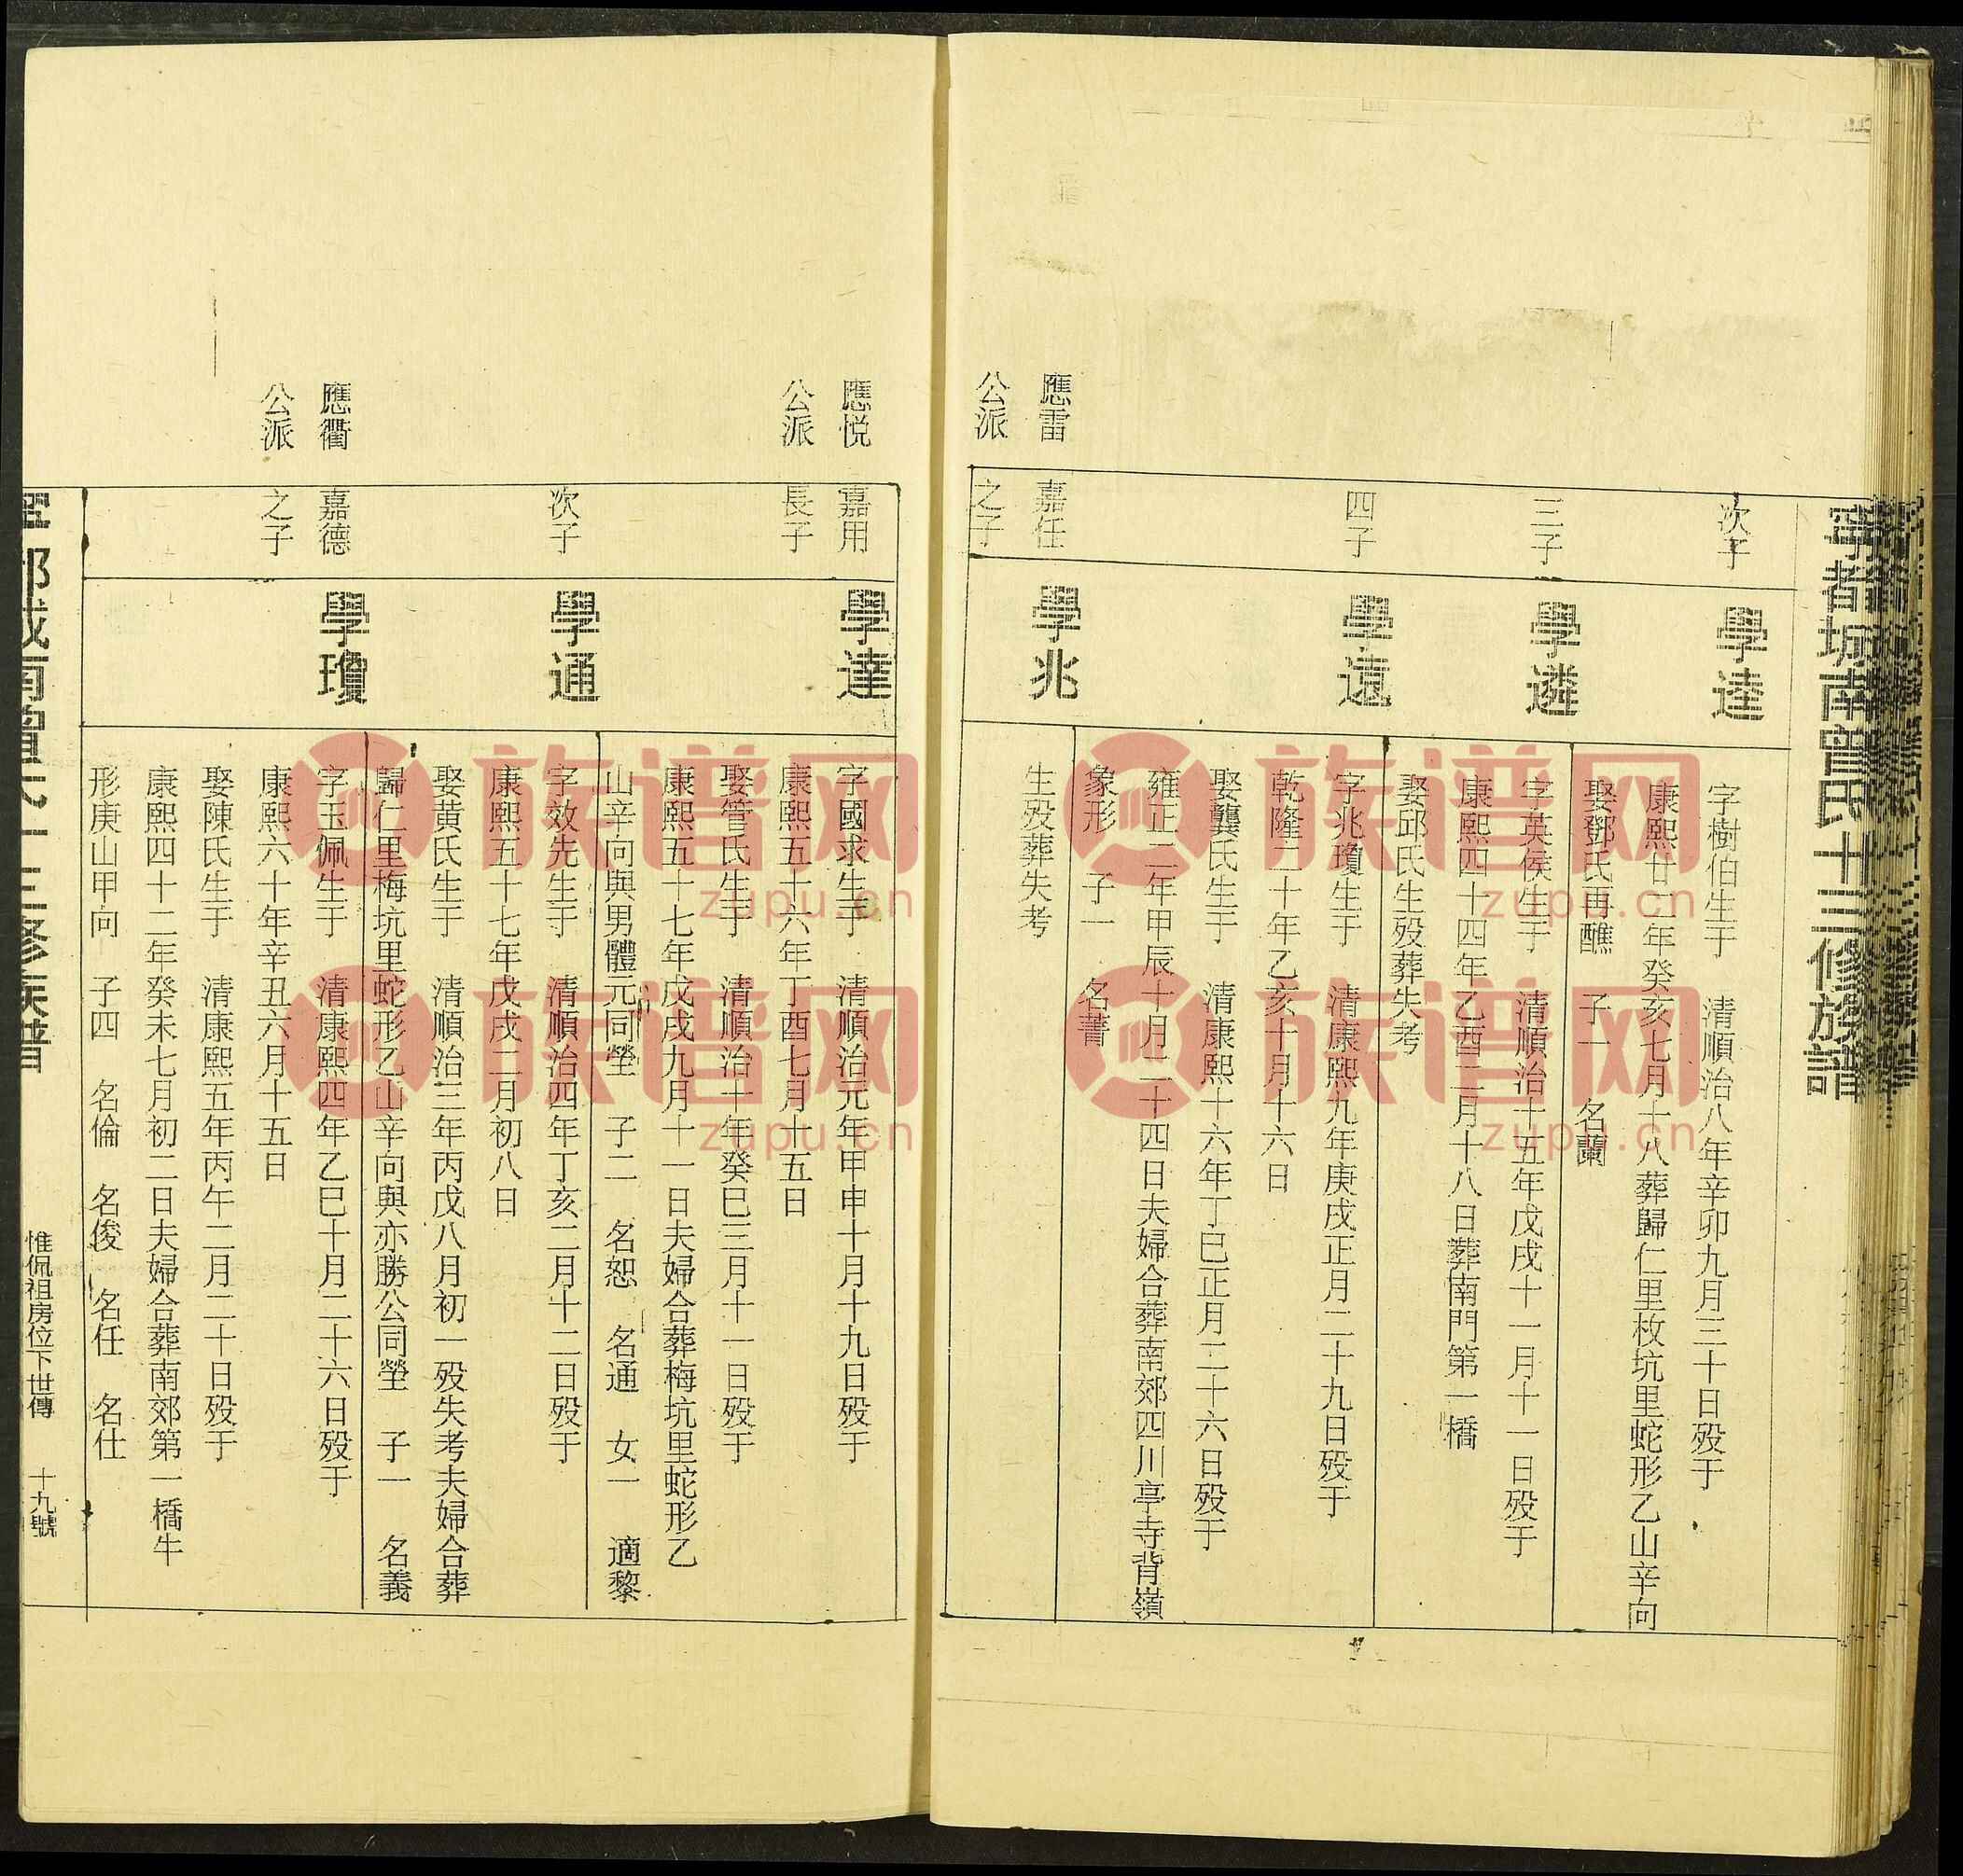 寧都城南曾氏十三修族譜
次子
學逵
字樹伯生于　清順治八年辛卯九月三十日殁于
康熙廿二年癸亥七月十八葬歸仁里枚坑里蛇形乙山辛向
娶鄧氏再醮　子一　名蘭
三子
學遴
字英侯生于　清順治十五年戊戌十一月十一日殁于
康熙四十四年乙酉二月十八日葬南門第一橋
娶邱氏生殁葬失考
四子
學遠
字兆瓊生于　清康熙九年庚戌正月二十九日殁于
乾隆二十年乙亥十月十六日
娶龔氏生于　清康熙十六年丁巳正月二十六日殁于
雍正二年甲辰十月二十四日夫婦合葬南郊四川亭寺背嶺
象形　子一　名菁
應雷
公派
嘉任
之子
學兆
生殁葬失考
應悅
公派
嘉用
長子
學達
字國求生于　清順治元年甲申十月十九日殁于
康熙五十六年丁酉七月十五日
娶管氏生于　清順治十年癸巳三月十一日殁于
康熙五十七年戊戌九月十一日夫婦合葬梅坑里蛇形乙
山辛向與男體元同塋　子二　名恕　名通　女一　適黎
次子
學通
字效先生于　清順治四年丁亥二月十二日殁于
康熙五十七年戊戌二月初八日
娶黃氏生于　清順治三年丙戌八月初一殁失考夫婦合葬
歸仁里梅坑里蛇形乙山辛向與亦勝公同塋　子一　名義
應衢
公派
嘉德
之子
學瓊
字玉佩生于　清康熙四年乙巳十月二十六日殁于
康熙六十年辛丑六月十五日
娶陳氏生于　清康熙五年丙午二月二十日殁于
康熙四十二年癸未七月初二日夫婦合葬南郊第一橋牛
形庚山甲向　子四　名倫　名俊　名任　名仕
寧都城南曾氏十三修族譜
惟侃祖房位下世傳　十九號
族谱网
zupu.cn
族谱网
zupu.cn
族谱网
zupu.cn
族谱网
zupu.cn